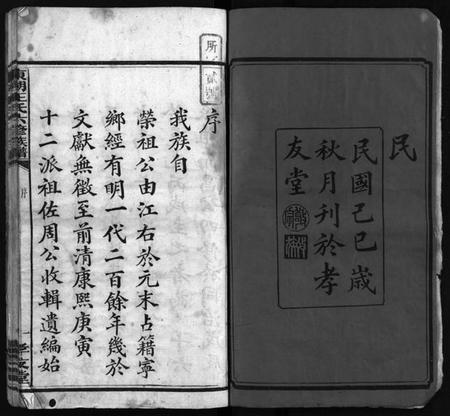 民
民國己巳歲
秋月刊於孝
友堂
序
我族自
榮祖公由江右於元末占籍寧
鄉經有明一代二百餘年幾於
文獻無徵至前清康熙庚寅
十二派祖佐周公收輯遺編始
氏六修族譜
序
孝友堂